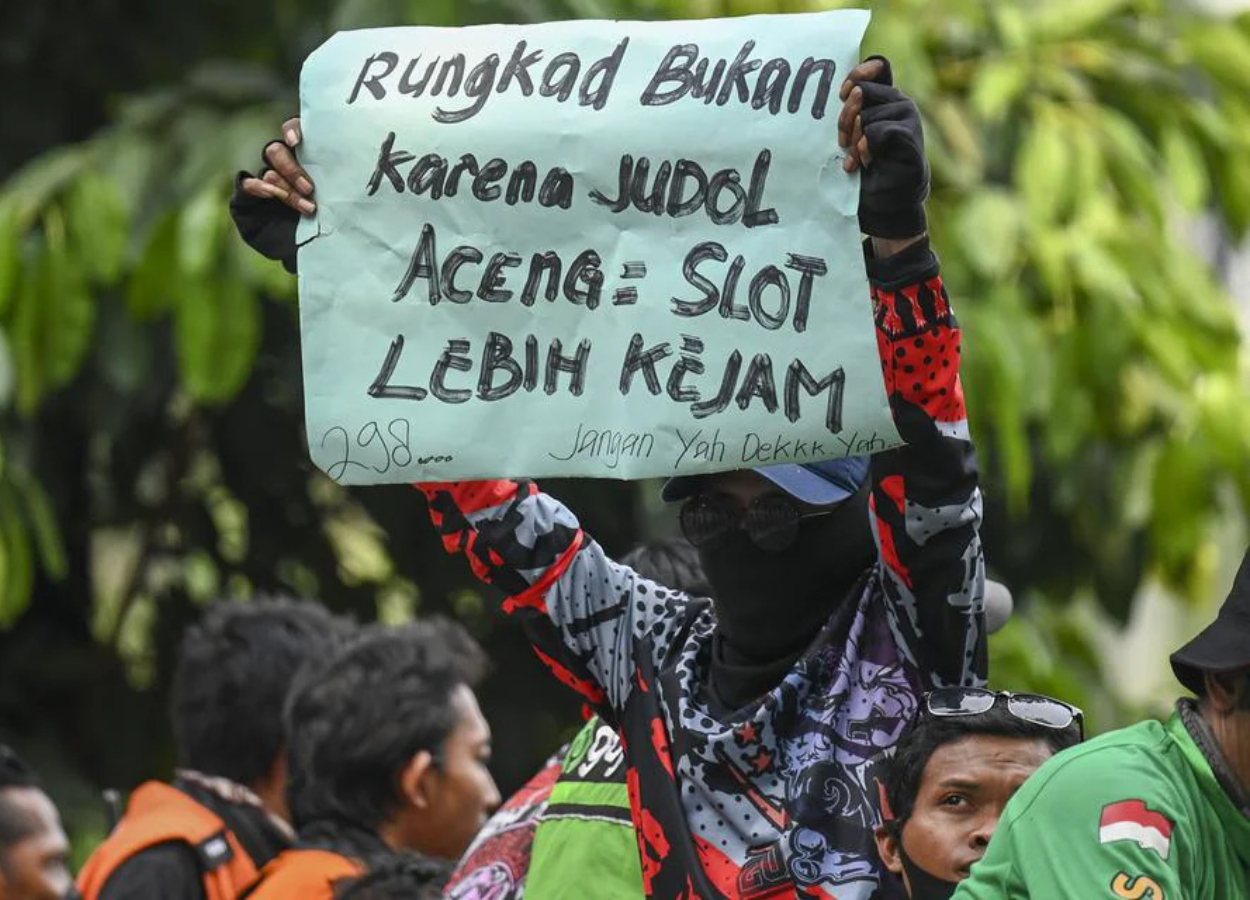 Rungkad Bukan
Karena JUDOL
ACENG = SLOT
LEBIH KEJAM
298....
Jangan Yah Dekkk. Yah...